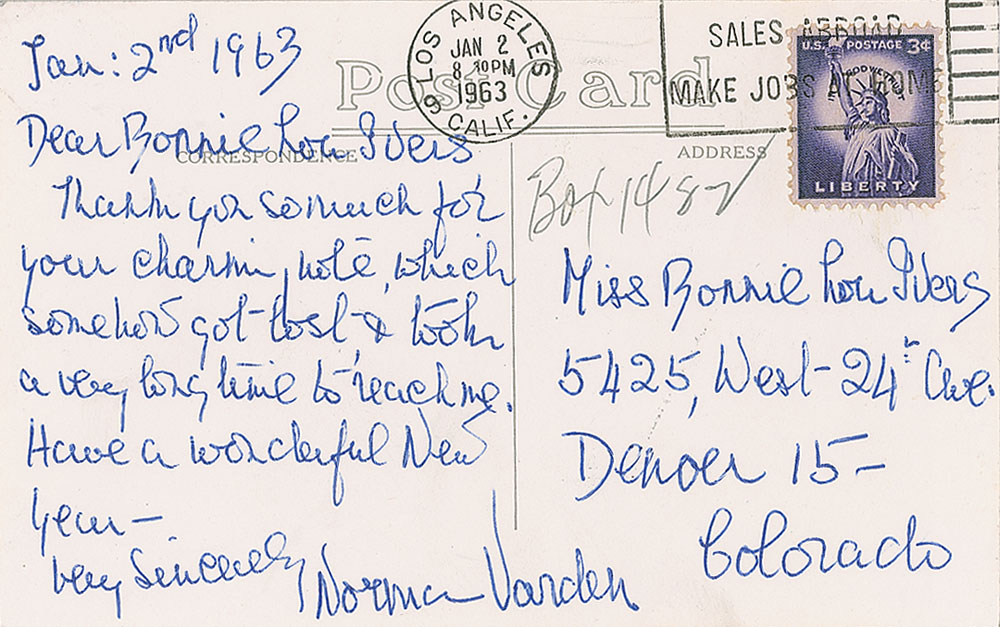 Jan: 2nd 1963
Dear Bonnie Lou Ivers
Thank you so much for
your charming note, which
somehow got lost & took
a very long time to reach me.
Have a wonderful New
Year —
Very Sincerely,
Norma Varden
Post Card
CORRESPONDENCE
ADDRESS
LOS ANGELES
JAN 2
8 30PM
1963
9 CALIF.
SALES ABROAD
MAKE JOBS AT HOME
U.S. POSTAGE 3¢
IN GOD WE TRUST
LIBERTY
Box 1487
Miss Bonnie Lou Ivers
5425, West 24th Ave.
Denver 15 —
Colorado